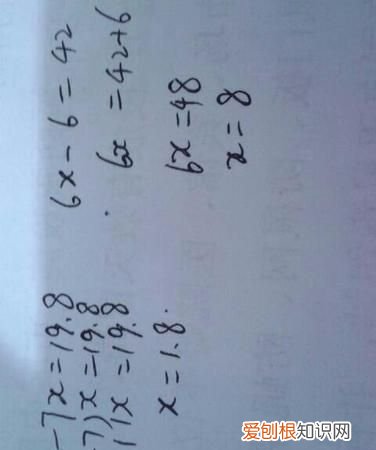 6x-6=42
6x =42+6
6x=48
x=8
-7x=19.8
7)x=19.8
11x=19.8
x=1.8.
爱刨根知识网